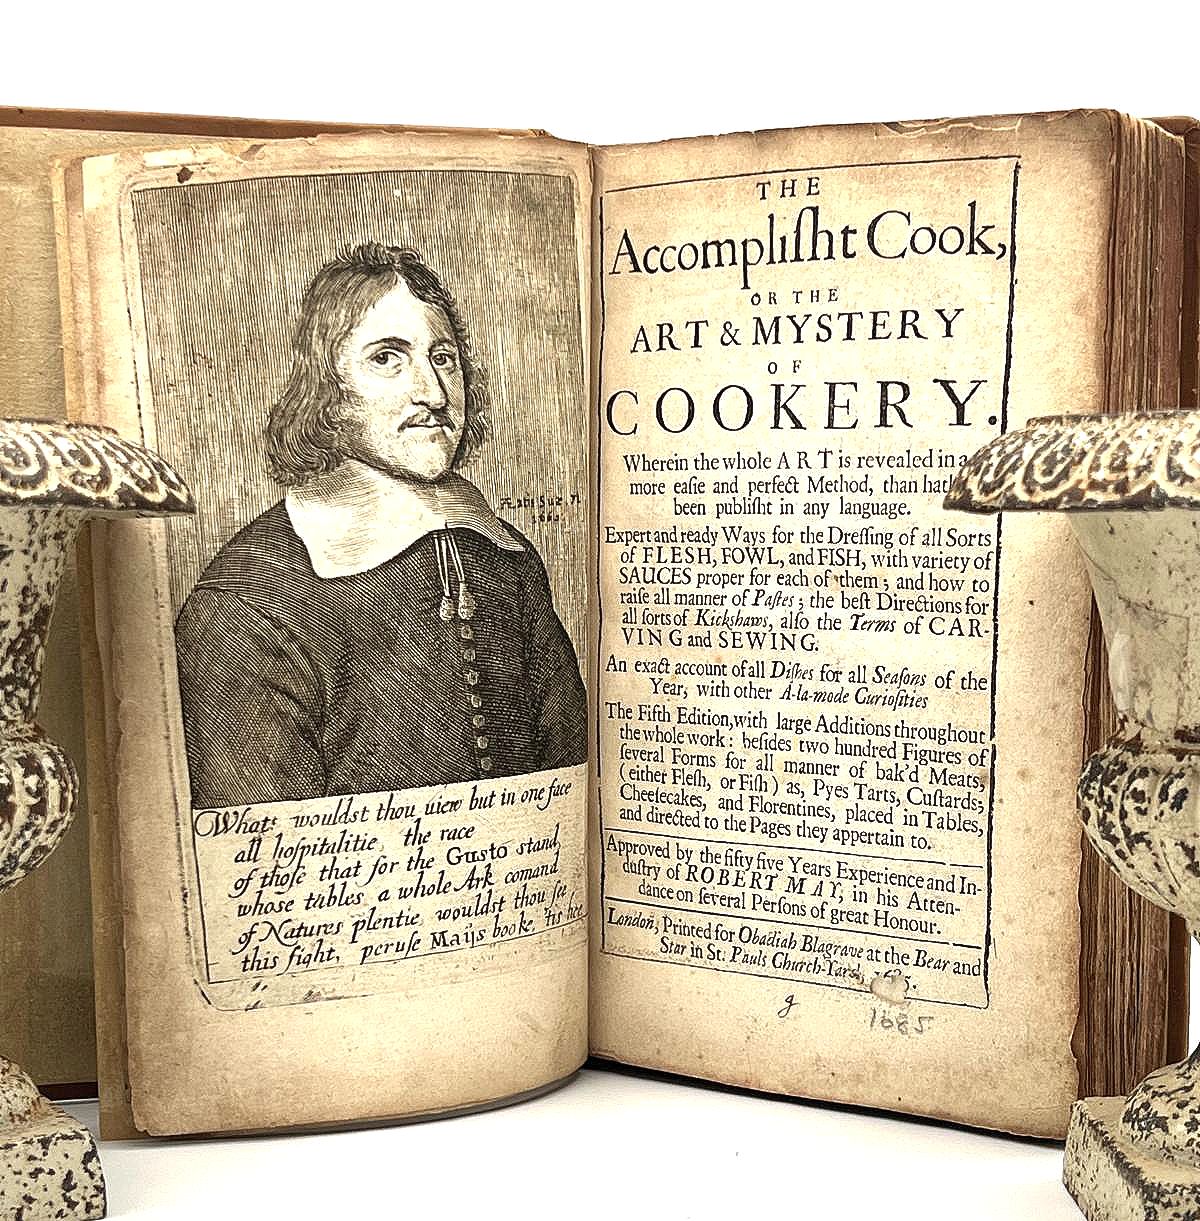 Ætatis Suæ. 71
1660.
What! wouldst thou view but in one face
all hospitalitie, the race
of those that for the Gusto stand,
whose tables a whole Ark comand
of Natures plentie, wouldst thou see
this sight, peruse Maijs booke, 'tis hee
THE
Accompliſht Cook,
OR THE
ART & MYSTERY
OF
COOKERY.
Wherein the whole ART is revealed in a
more eaſie and perfect Method, than hath
been publiſht in any language.
Expert and ready Ways for the Dreſſing of all Sorts
of FLESH, FOWL, and FISH, with variety of
SAUCES proper for each of them; and how to
raiſe all manner of Paſtes; the beſt Directions for
all ſorts of Kickshaws, alſo the Terms of CAR-
VING and SEWING.
An exact account of all Diſhes for all Seaſons of the
Year, with other A-la-mode Curioſities
The Fifth Edition, with large Additions throughout
the whole work: beſides two hundred Figures of
ſeveral Forms for all manner of bak'd Meats,
(either Fleſh, or Fiſh) as, Pyes Tarts, Cuſtards,
Cheeſecakes, and Florentines, placed in Tables,
and directed to the Pages they appertain to.
Approved by the fifty five Years Experience and In-
duſtry of ROBERT MAY, in his Atten-
dance on ſeveral Perſons of great Honour.
London, Printed for Obadiah Blagrave at the Bear and
Star in St. Pauls Church-Yard, 1685.
g
1685